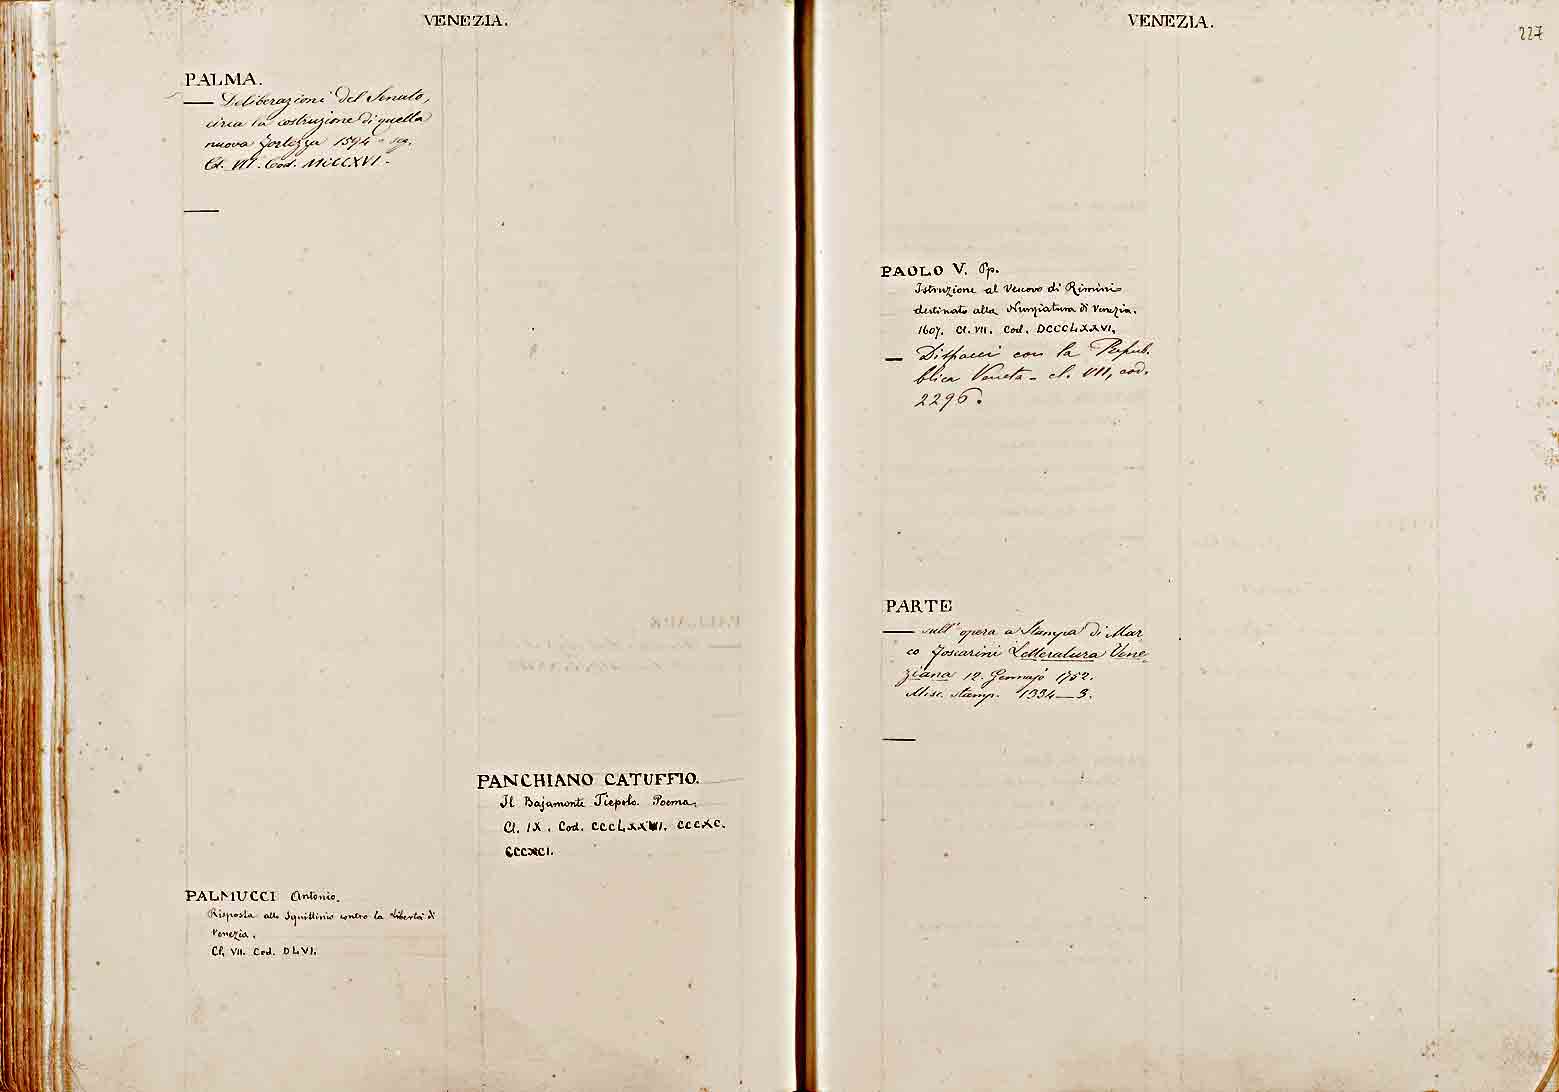 VENEZIA.
PALMA.
— Deliberazioni del Senato,
circa la costruzione di quella
nuova fortezza 1594 - seg.
Cl. VII. Cod. MCCXVI.
PALMUCCI Antonio.
Risposta allo Squittinio contro la libertà di
Venezia.
Cl. VII. Cod. DLVI.
PANCHIANO CATUFFIO.
Il Bajamonte Tiepolo. Poema.
Cl. IX. Cod. CCCLXXVI. CCCXC.
CCCXCI.
VENEZIA.
227
PAOLO V. Pp.
Istruzione al Vescovo di Rimini
destinato alla Nunziatura di Venezia.
1607. Cl. VII. Cod. DCCCLXXVI.
— Dispacci con la Repub.
blica Veneta - cl. VII, cod.
2296.
PARTE
— sull' opera a Stampa di Mar
co Foscarini Letteratura Vene
ziana 12. Gennajo 1752.
Misc. stamp. 1334—3.